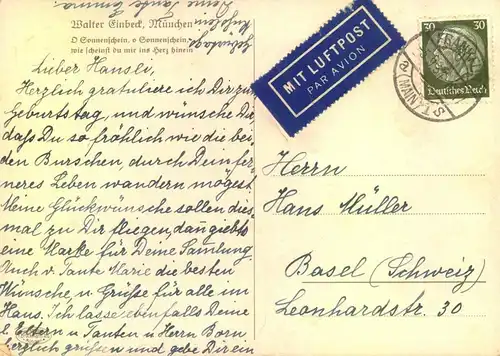 Walter Einbeck, München
O Sonnenschein, o Sonnenschein,
wie scheinst du mir ins Herz hinein
Lieber Hansli,
Herzlich gratuliere ich Dir zum
Geburtstag, und wünsche Dir
daß Du so fröhlich wie die bei-
den Burschen, durch Dein fer-
neres Leben wandern mögest
Meine Glückwünsche sollen dies
mal zu Dir fliegen, dann giebts
eine Marke für Deine Samlung
Auch v. Tante Marie die besten
Wünsche, u. Grüße für alle im
Hans. Ich lasse ebenfalls Deine
l. Eltern u Tanten u Herrn Born
herzlich grüßen und gebe Dir ein
Deine Tante Emma
MIT LUFTPOST
PAR AVION
30 30
Deutsches Reich
FRANKF
(MAIN)
Herrn
Hans Müller
Basel (Schweiz)
Leonhardstr. 30